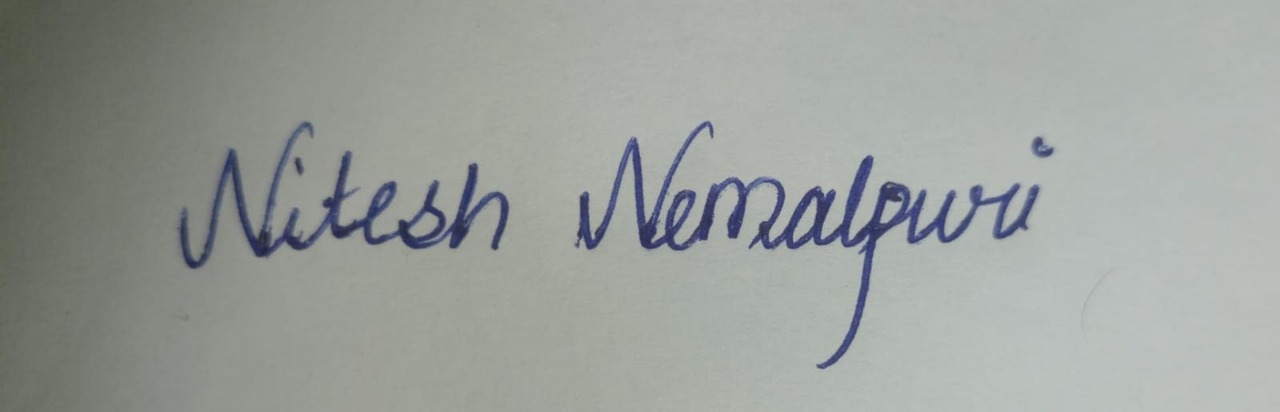 Nitesh Nemalpuri